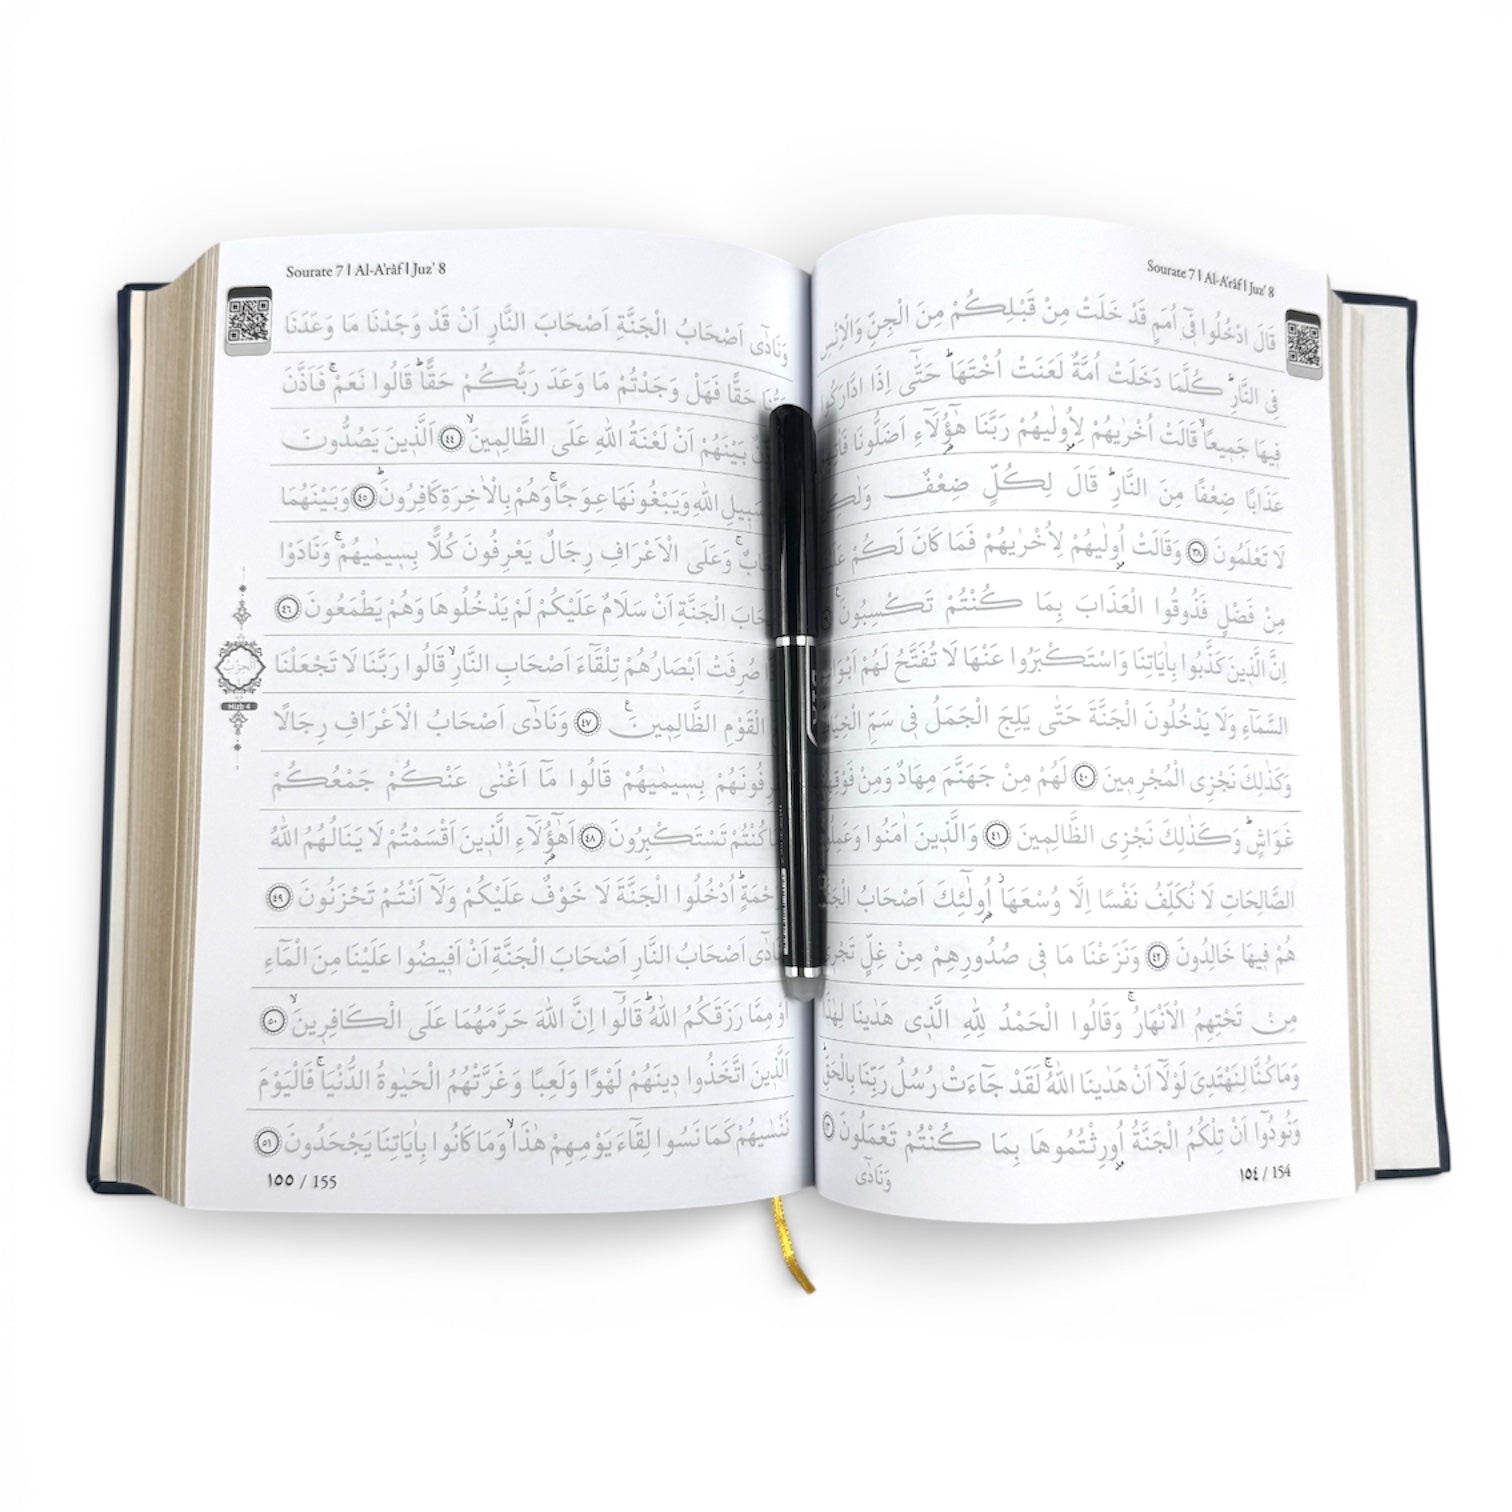 Sourate 7 | Al-A'râf | Juz' 8
قَالَ ادْخُلُوا فٖٓي اُمَمٍ قَدْ خَلَتْ مِنْ قَبْلِكُمْ مِنَ الْجِنِّ وَالْاِنْسِ
فِي النَّارِؕ كُلَّمَا دَخَلَتْ اُمَّةٌ لَعَنَتْ اُخْتَهَاؕ حَتّٰٓى اِذَا ادَّارَكُوا
فٖيهَا جَمٖيعًاۙ قَالَتْ اُخْرٰيهُمْ لِاُو۫لٰيهُمْ رَبَّنَا هٰٓؤُ۬لَٓاءِ اَضَلُّونَا
عَذَابًا ضِعْفًا مِنَ النَّارِؕ قَالَ لِكُلٍّ ضِعْفٌ
لَا تَعْلَمُونَ ﴿٣٨﴾ وَقَالَتْ اُو۫لٰيهُمْ لِاُخْرٰيهُمْ فَمَا كَانَ لَكُمْ
مِنْ فَضْلٍ فَذُوقُوا الْعَذَابَ بِمَا كُنْتُمْ تَكْسِبُونَ
اِنَّ الَّذٖينَ كَذَّبُوا بِاٰيَاتِنَا وَاسْتَكْبَرُوا عَنْهَا لَا تُفَتَّحُ لَهُمْ
السَّمَٓاءِ وَلَا يَدْخُلُونَ الْجَنَّةَ حَتّٰى يَلِجَ الْجَمَلُ فٖي سَمِّ
وَكَذٰلِكَ نَجْزِي الْمُجْرِمٖينَ ﴿٤٠﴾ لَهُمْ مِنْ جَهَنَّمَ مِهَادٌ وَمِنْ
غَوَاشٍؕ وَكَذٰلِكَ نَجْزِي الظَّالِمٖينَ ﴿٤١﴾ وَالَّذٖينَ اٰمَنُوا
الصَّالِحَاتِ لَا نُكَلِّفُ نَفْسًا اِلَّا وُسْعَهَاؗ اُو۬لٰٓئِكَ اَصْحَابُ
هُمْ فٖيهَا خَالِدُونَ ﴿٤٢﴾ وَنَزَعْنَا مَا فٖي صُدُورِهِمْ مِنْ غِلٍّ
مِنْ تَحْتِهِمُ الْاَنْهَارُۚ وَقَالُوا الْحَمْدُ لِلّٰهِ الَّذٖي هَدٰينَا لِهٰذَا
وَمَا كُنَّا لِنَهْتَدِيَ لَوْلَٓا اَنْ هَدٰينَا اللّٰهُۚ لَقَدْ جَٓاءَتْ رُسُلُ رَبِّنَا بِالْحَقِّؕ
وَنُودُٓوا اَنْ تِلْكُمُ الْجَنَّةُ اُو۫رِثْتُمُوهَا بِمَا كُنْتُمْ تَعْمَلُونَ
وَنَادٰٓى
١٥٤ / 154
Sourate 7 | Al-A'râf | Juz' 8
وَنَادٰٓى اَصْحَابُ الْجَنَّةِ اَصْحَابَ النَّارِ اَنْ قَدْ وَجَدْنَا مَا وَعَدَنَا
حَقًّا فَهَلْ وَجَدْتُمْ مَا وَعَدَ رَبُّكُمْ حَقًّاؕ قَالُوا نَعَمْۚ فَاَذَّنَ
بَيْنَهُمْ اَنْ لَعْنَةُ اللّٰهِ عَلَى الظَّالِمٖينَۙ ﴿٤٤﴾ اَلَّذٖينَ يَصُدُّونَ
سَبٖيلِ اللّٰهِ وَيَبْغُونَهَا عِوَجًاۚ وَهُمْ بِالْاٰخِرَةِ كَافِرُونَؕ ﴿٤٥﴾ وَبَيْنَهُمَا
وَعَلَى الْاَعْرَافِ رِجَالٌ يَعْرِفُونَ كُلًّا بِسٖيمٰيهُمْۚ وَنَادَوْا
الْجَنَّةِ اَنْ سَلَامٌ عَلَيْكُمْ لَمْ يَدْخُلُوهَا وَهُمْ يَطْمَعُونَ ﴿٤٦﴾
صُرِفَتْ اَبْصَارُهُمْ تِلْقَٓاءَ اَصْحَابِ النَّارِۙ قَالُوا رَبَّنَا لَا تَجْعَلْنَا
الْقَوْمِ الظَّالِمٖينَ۟ ﴿٤٧﴾ وَنَادٰٓى اَصْحَابُ الْاَعْرَافِ رِجَالًا
بِسٖيمٰيهُمْ قَالُوا مَٓا اَغْنٰى عَنْكُمْ جَمْعُكُمْ
كُنْتُمْ تَسْتَكْبِرُونَ ﴿٤٨﴾ اَهٰٓؤُ۬لَٓاءِ الَّذٖينَ اَقْسَمْتُمْ لَا يَنَالُهُمُ اللّٰهُ
اُدْخُلُوا الْجَنَّةَ لَا خَوْفٌ عَلَيْكُمْ وَلَٓا اَنْتُمْ تَحْزَنُونَ ﴿٤٩﴾
اَصْحَابُ النَّارِ اَصْحَابَ الْجَنَّةِ اَنْ اَفٖيضُوا عَلَيْنَا مِنَ الْمَٓاءِ
اَوْ مِمَّا رَزَقَكُمُ اللّٰهُؕ قَالُٓوا اِنَّ اللّٰهَ حَرَّمَهُمَا عَلَى الْكَافِرٖينَۙ ﴿٥٠﴾
اَلَّذٖينَ اتَّخَذُوا دٖينَهُمْ لَهْوًا وَلَعِبًا وَغَرَّتْهُمُ الْحَيٰوةُ الدُّنْيَاۚ فَالْيَوْمَ
نَنْسٰيهُمْ كَمَا نَسُوا لِقَٓاءَ يَوْمِهِمْ هٰذَاۙ وَمَا كَانُوا بِاٰيَاتِنَا يَجْحَدُونَ ﴿٥١﴾
Hizb 4
١٥٥ / 155